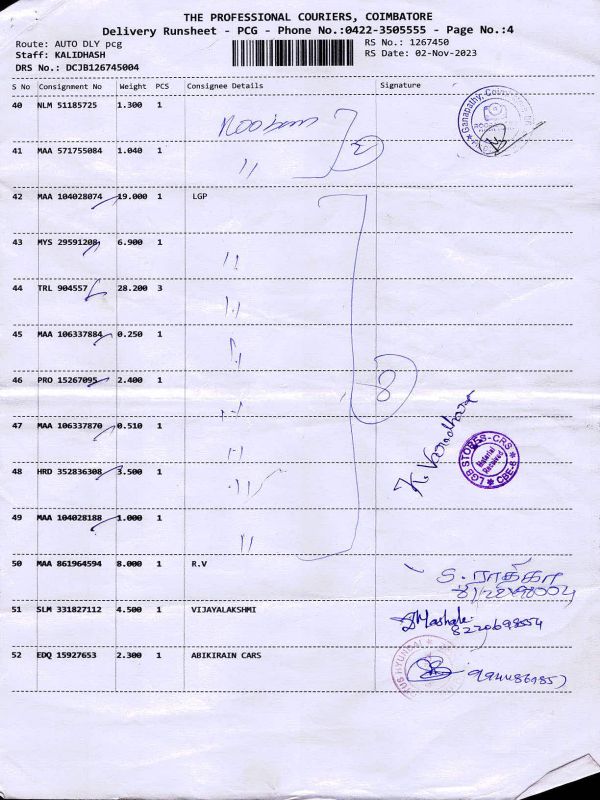 THE PROFESSIONAL COURIERS, COIMBATORE
Delivery Runsheet - PCG - Phone No.:0422-3505555 - Page No.:4
Route: AUTO DLY pcg RS No.: 1267450
Staff: KALIDHASH RS Date: 02-Nov-2023
DRS No.: DCJB126745004
S No Consignment No Weight PCS Consignee Details Signature
40 NLM 51185725 1.300 1
41 MAA 571755084 1.040 1 "
2
42 MAA 104028074 19.000 1 LGP
43 MYS 29591208 6.900 1 "
44 TRL 904557 28.200 3 "
45 MAA 106337884 0.250 1 "
46 PRO 15267095 2.400 1 "
8
47 MAA 106337870 0.510 1 "
K. Varadhara
LGB STORES-CRS
Material
Received
CBE-6
48 HRD 352836308 3.500 1 "
49 MAA 104028188 1.000 1 "
50 MAA 861964594 8.000 1 R.V
S. ராதிகா
51 SLM 331827112 4.500 1 VIJAYALAKSHMI
8220698554
52 EDQ 15927653 2.300 1 ABIKIRAIN CARS
HYUNDAI